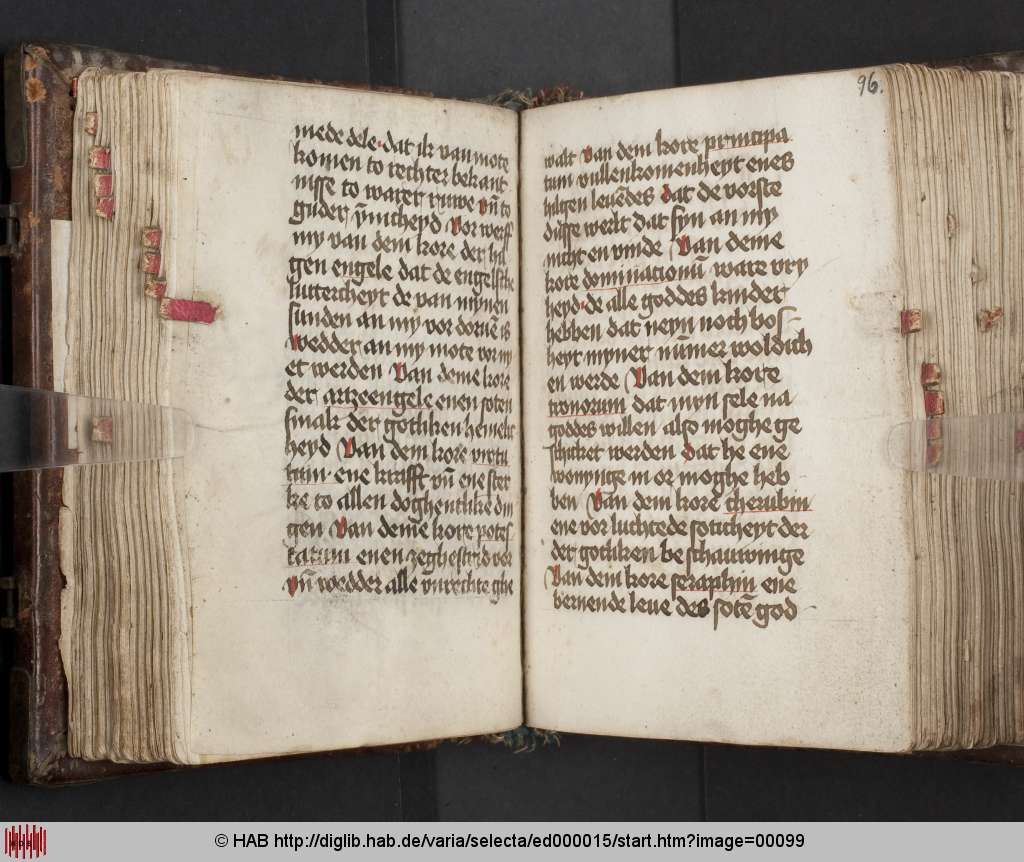 mede dele dat ik van mote
komen to rechter bekant
nisse to warer ruwe vn̄ to
guder
Vor werff
my van dem kore der hil
gen engele dat de engelsche
luttercheyt de van mynen
sunden an my vor doruē is
wedder an my mote vor ny
et werden Van deme kore
der artzeengele enen soten
smak der gotliken hemelic
heyd Van dem kore virtu
tum ene krafft vn̄ ene ster
ke to allen doghentlike din
gen Van deme kore potes
tatum enen zeghe vor
vn̄ wedder alle vnrechte ghe
96.
walt Van dem kore principa
tum vullenkomenheyt enes
hilgen leuēdes dat de vorste
dusse werlt dat syn an my
nicht en vinde Van deme
kore dominacionū ware vry
heyd de alle goddes kinder
hebben dat neyn noch bos
heyt myner nūmer woldich
en werde Van dem kore
tronorum dat myn sele na
goddes willen also moghe ge
schicket werden dat he ene
wonynge in or moghe heb
ben Van dem kore cherubin
ene vor luchtede soticheyt der
der gotliken beschauwinge
Van dem kore seraphin ene
bernende leue des sotē god
© HAB http://diglib.hab.de/varia/selecta/ed000015/start.htm?image=00099